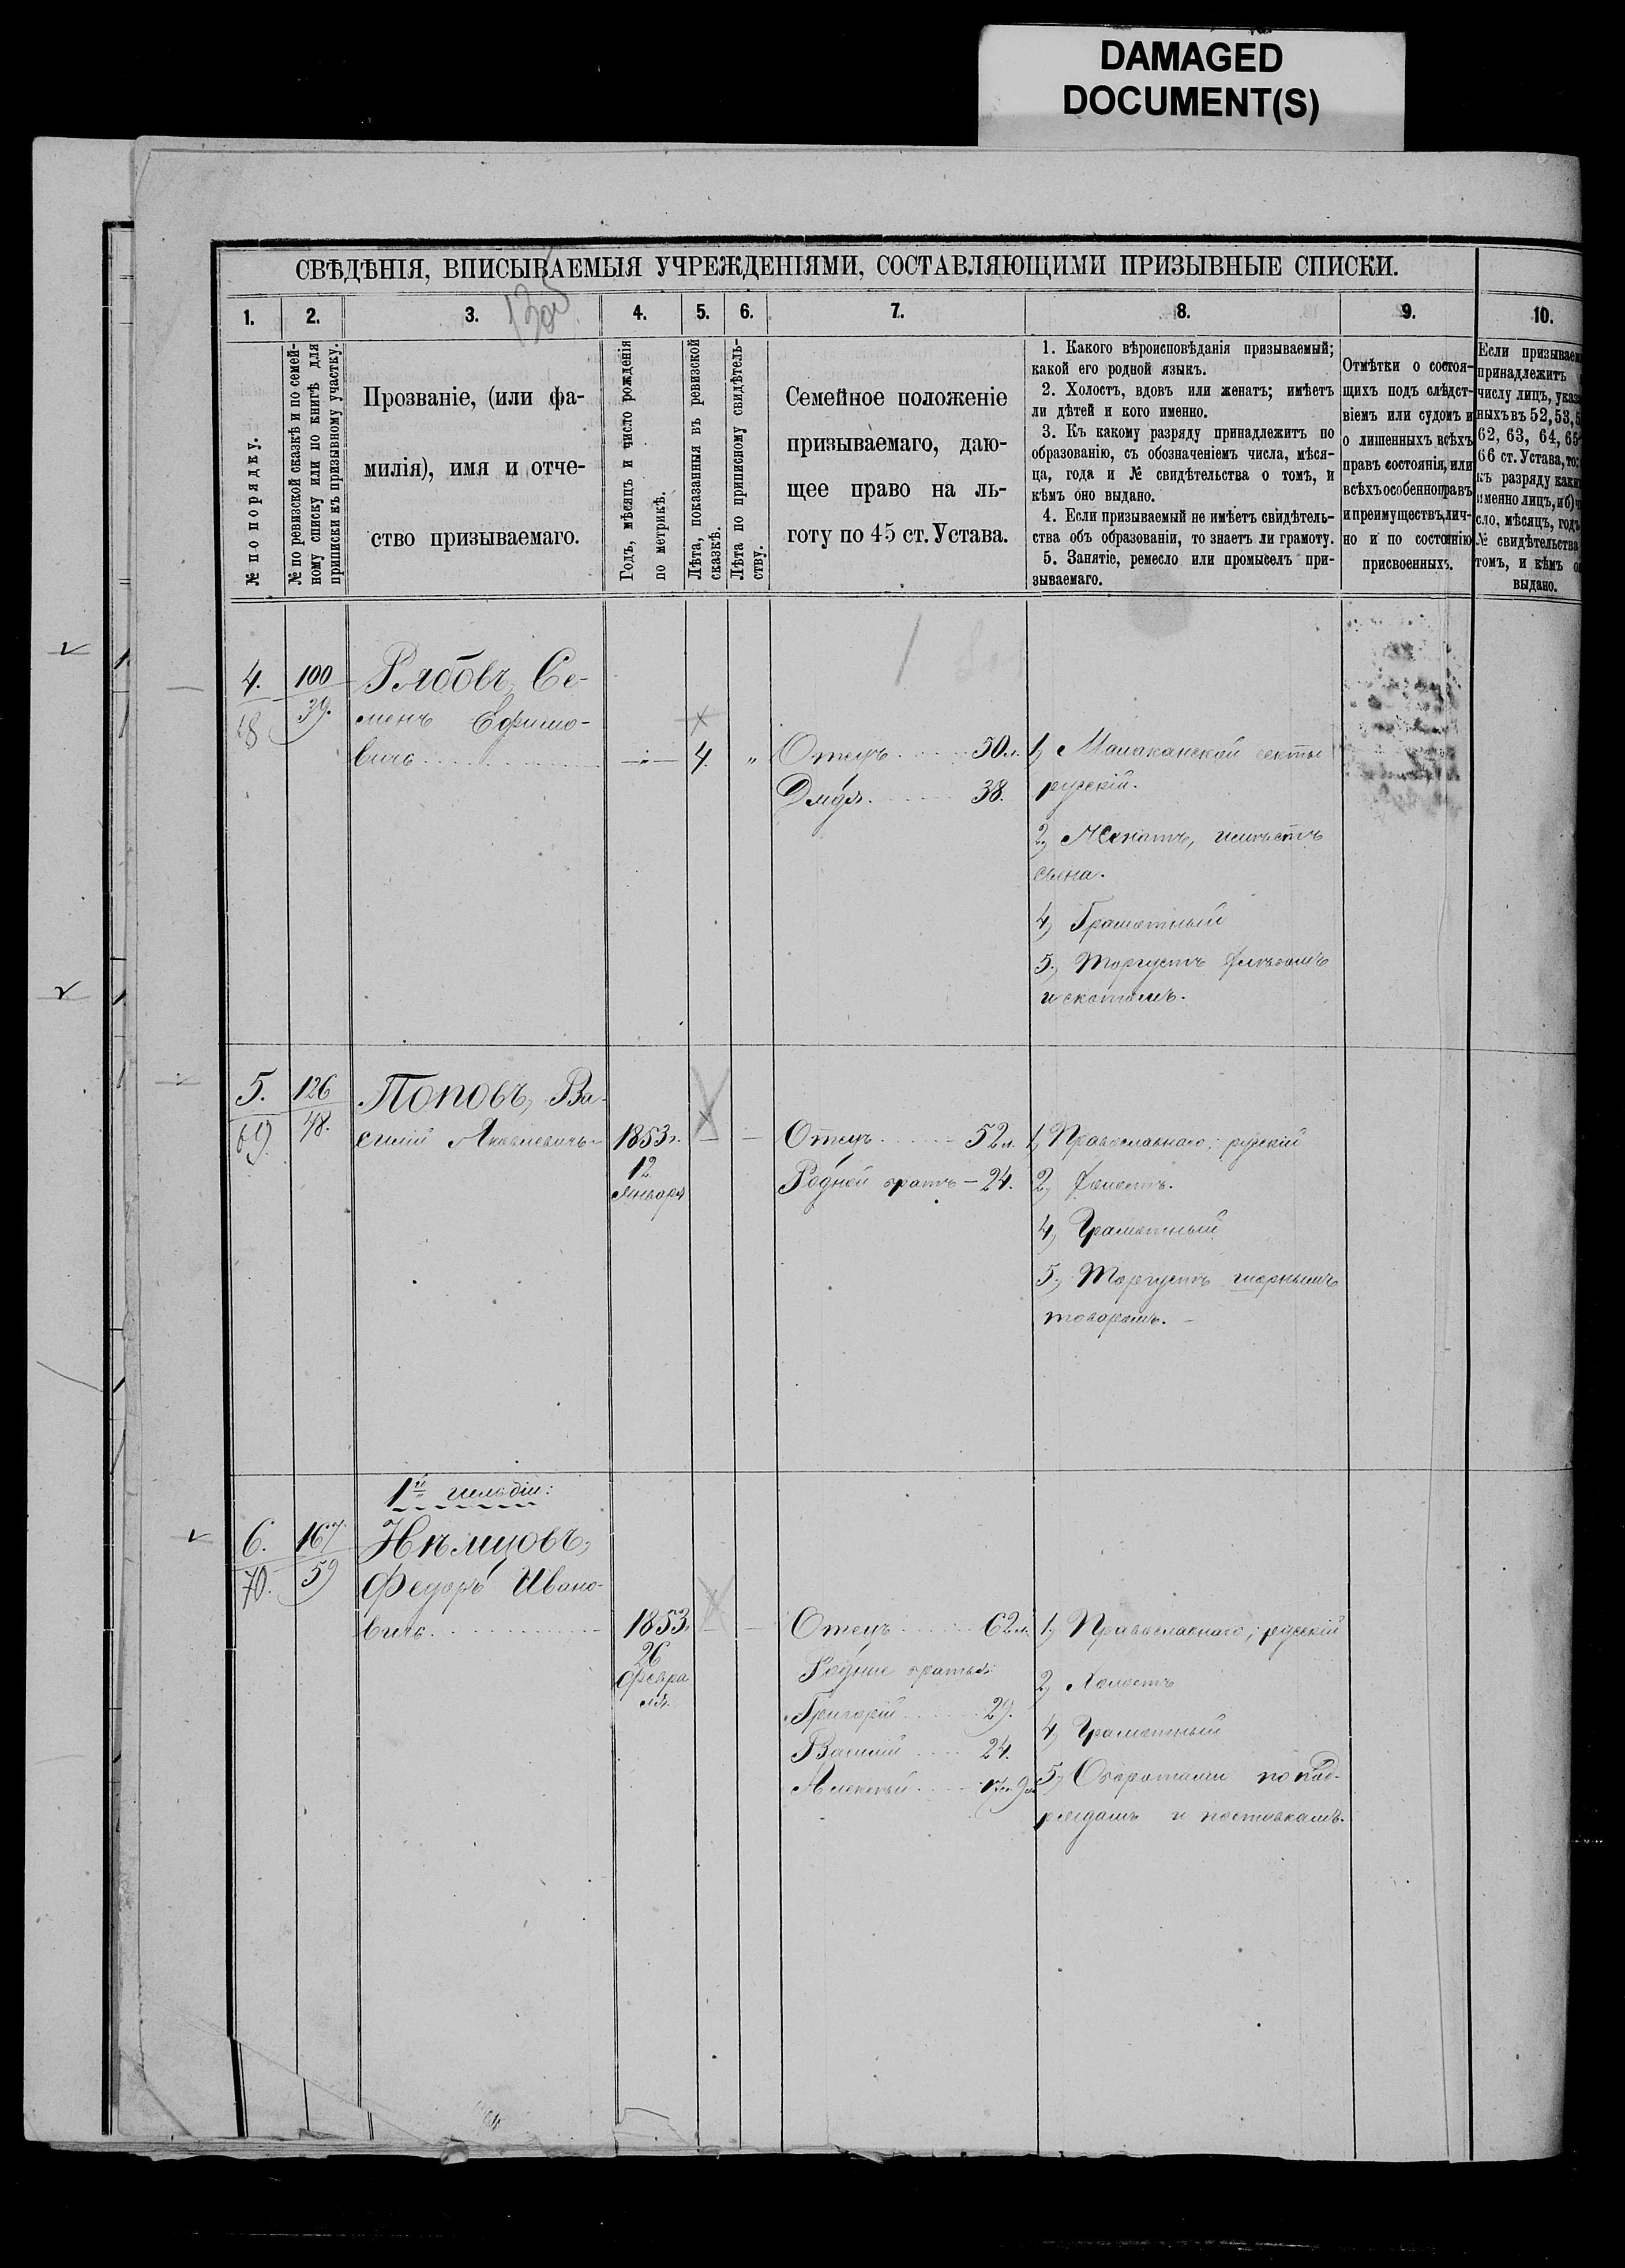 DAMAGED
DOCUMENT(S)
СВѢДѢНІЯ, ВПИСЫВАЕМЫЯ УЧРЕЖДЕНІЯМИ, СОСТАВЛЯЮЩИМИ ПРИЗЫВНЫЕ СПИСКИ.
1.
2.
3.
4.
5.
6.
7.
8.
9.
10.
№ по порядку.
№ по ревизской сказкѣ и по семей-
ному списку или по книгѣ для
приписки къ призывному участку.
Прозваніе, (или фа-
милія), имя и отче-
ство призываемаго.
Годъ, мѣсяцъ и число рожденія
по метрикѣ.
Лѣта, показанныя въ ревизской
сказкѣ.
Лѣта по приписному свидѣтель-
ству.
Семейное положеніе
призываемаго, даю-
щее право на ль-
готу по 45 ст. Устава.
1. Какого вѣроисповѣданія призываемый;
какой его родной языкъ.
2. Холостъ, вдовъ или женатъ; имѣетъ
ли дѣтей и кого именно.
3. Къ какому разряду принадлежитъ по
образованію, съ обозначеніемъ числа, мѣся-
ца, года и № свидѣтельства о томъ, и
кѣмъ оно выдано.
4. Если призываемый не имѣетъ свидѣтель-
ства объ образованіи, то знаетъ ли грамоту.
5. Занятіе, ремесло или промыселъ при-
зываемаго.
Отмѣтки о состоя-
щихъ подъ слѣдст-
віемъ или судомъ и
о лишенныхъ всѣхъ
правъ состоянія, или
всѣхъ особенно правъ
и преимуществъ, лич-
но и по состоянію
присвоенныхъ.
Если призываем
принадлежитъ
числу лицъ, указ
ныхъ въ 52, 53, 5
62, 63, 64, 65
66 ст. Устава, то:
къ разряду каки
именно лицъ, и б) ч
сло, мѣсяцъ, годъ
№ свидѣтельства
томъ, и кѣмъ о
выдано.
4.
100
39.
Рябовъ, Се-
менъ Ефимо-
вичъ
4.
"
Отецъ 50 л.
Дядя 38.
1, Малаканской секты
русскій.
2, Женатъ, имѣетъ
сына.
4, Грамотный
5, Торгуетъ хлѣбомъ
и скотомъ.
5.
69.
126
48.
Поповъ, Ва-
силій Яковлевичъ
1853 г.
12
Января
Отецъ 52 л.
Родной братъ — 24.
1, Православнаго; русскій
2, Холостъ.
4, Грамотный
5, Торгуетъ
товаромъ.
1й гильдіи:
6.
70.
167
59
Нѣмцовъ,
Федоръ Ивано-
вичъ
1853
26
Февра
ля.
Отецъ 62 л.
Родные братья:
Григорій 29.
Василій 24.
Алексѣй
1, Православнаго; русскій
2, Холостъ
4, Грамотный
5, Оборотами по под-
рядамъ и поставкамъ.